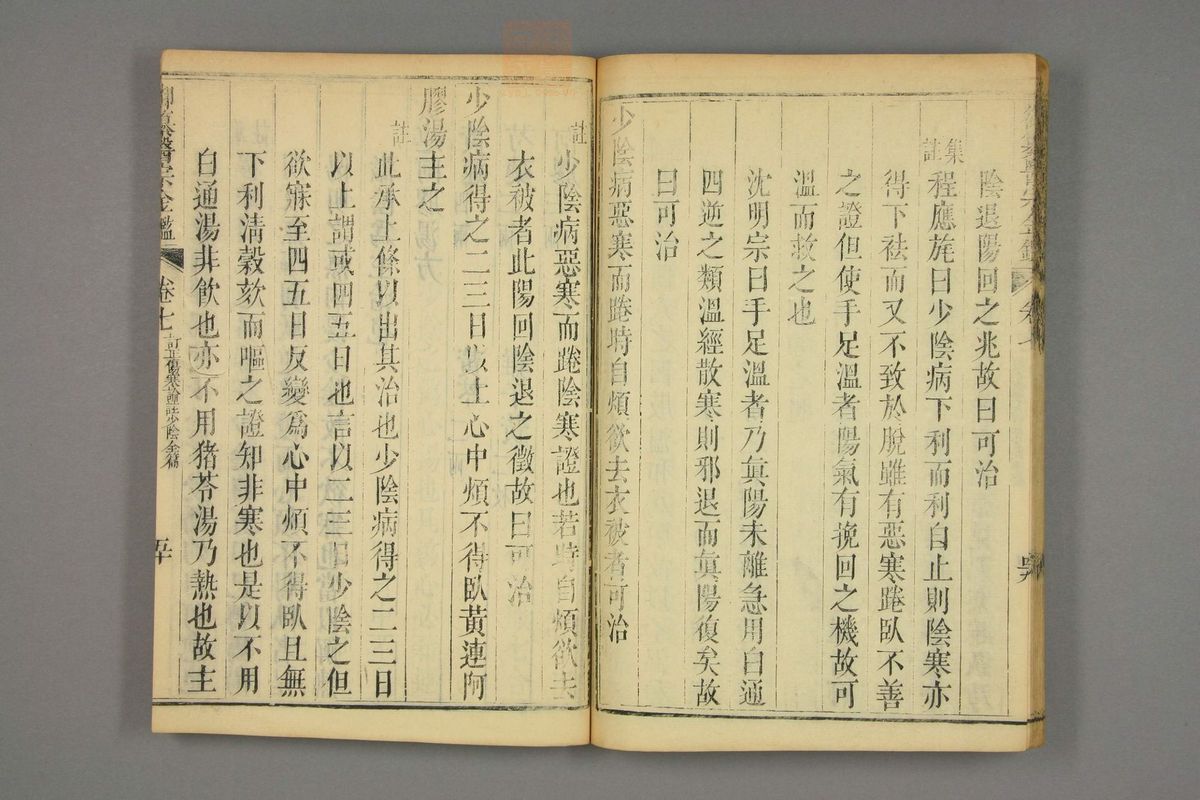 陰退陽回之兆故曰可治
集註
程應旄曰少陰病下利而利自止則陰寒亦
得下祛而又不致於脫雖有惡寒踡臥不善
之證但使手足溫者陽氣有挽回之機故可
溫而救之也
沈明宗曰手足溫者乃眞陽未離急用白通
四逆之類溫經散寒則邪退而眞陽復矣故
曰可治
少陰病惡寒而踡時自煩欲去衣被者可治
註
少陰病惡寒而踡陰寒證也若時自煩欲去
衣被者此陽回陰退之徵故曰可治
少陰病得之二三日以上心中煩不得臥黃連阿
膠湯主之
註
此承上條以出其治也少陰病得之二三日
以上謂或四五日也言以二三日少陰之但
欲寐至四五日反變爲心中煩不得臥且無
下利清穀欬而嘔之證知非寒也是以不用
白通湯非飮也亦不用猪苓湯乃熱也故主
御纂醫宗金鑑 卷七 訂正傷寒論註少陰全篇 五十